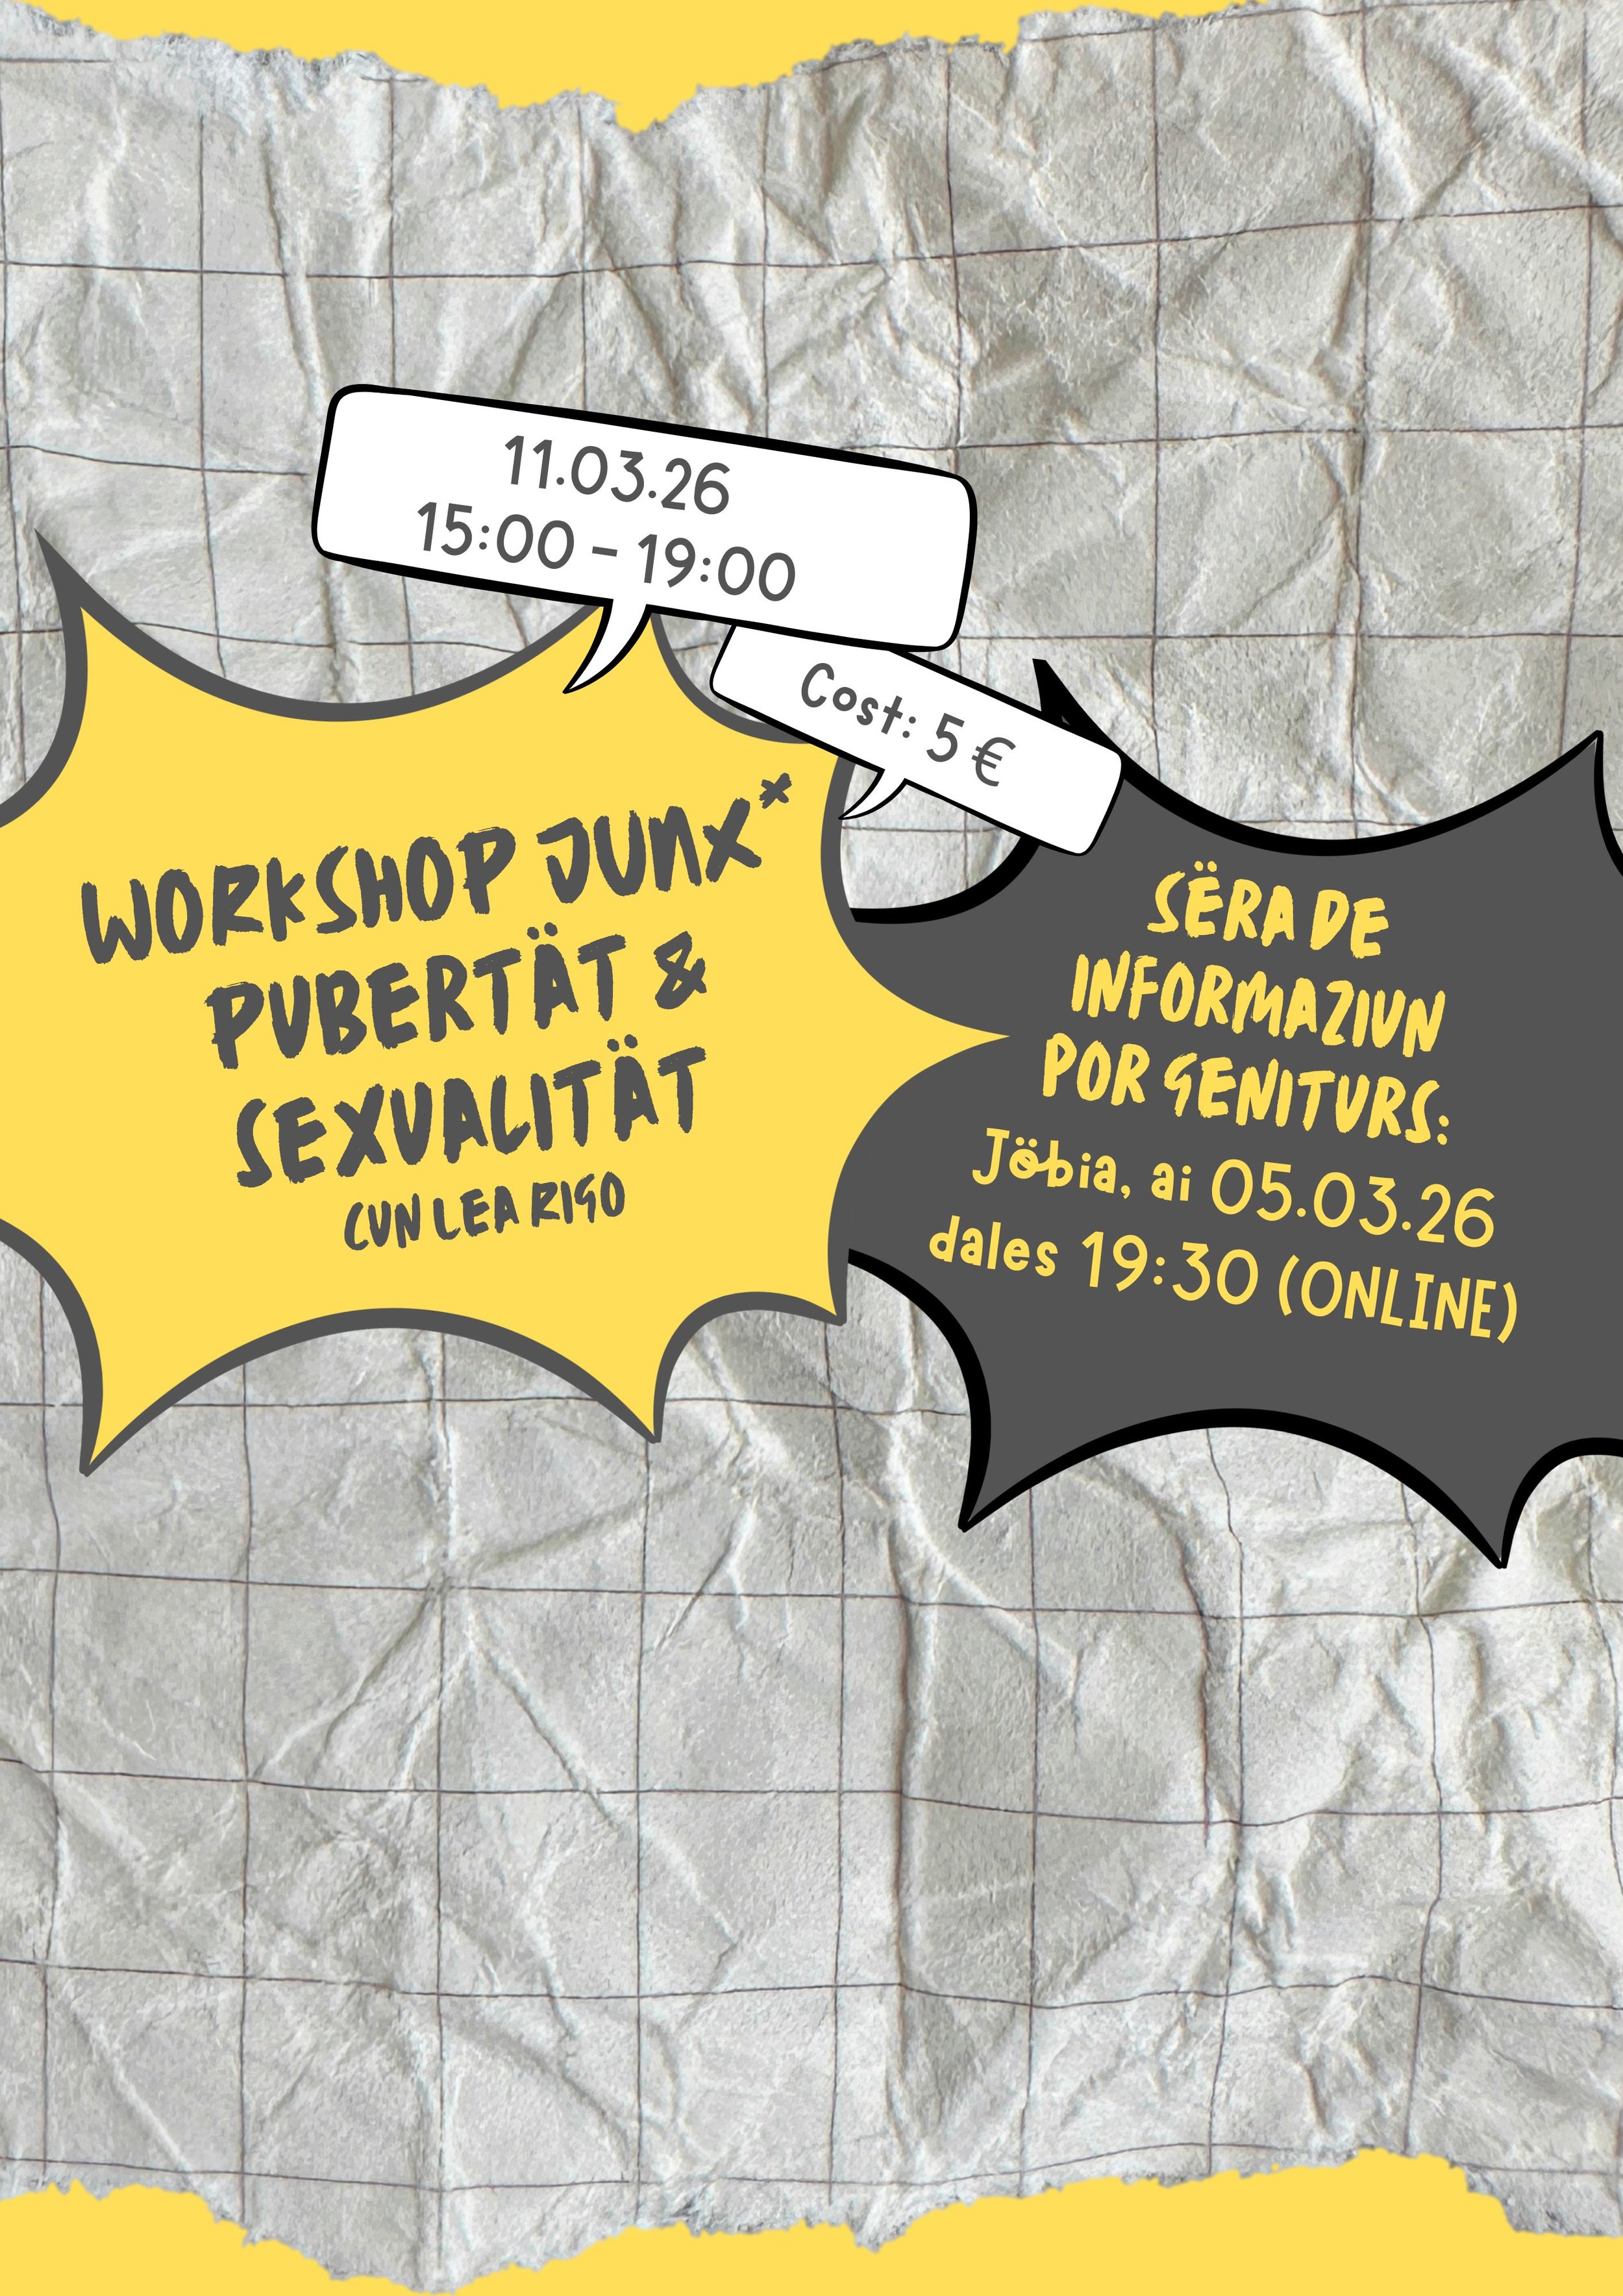 11.03.26
15:00 - 19:00
Cost: 5 €
WORKSHOP JUNX*
PUBERTÄT &
SEXUALITÄT
CUN LEA RIGO
SËRA DE
INFORMAZIUN
POR GENITURS:
Jöbia, ai 05.03.26
dales 19:30 (ONLINE)